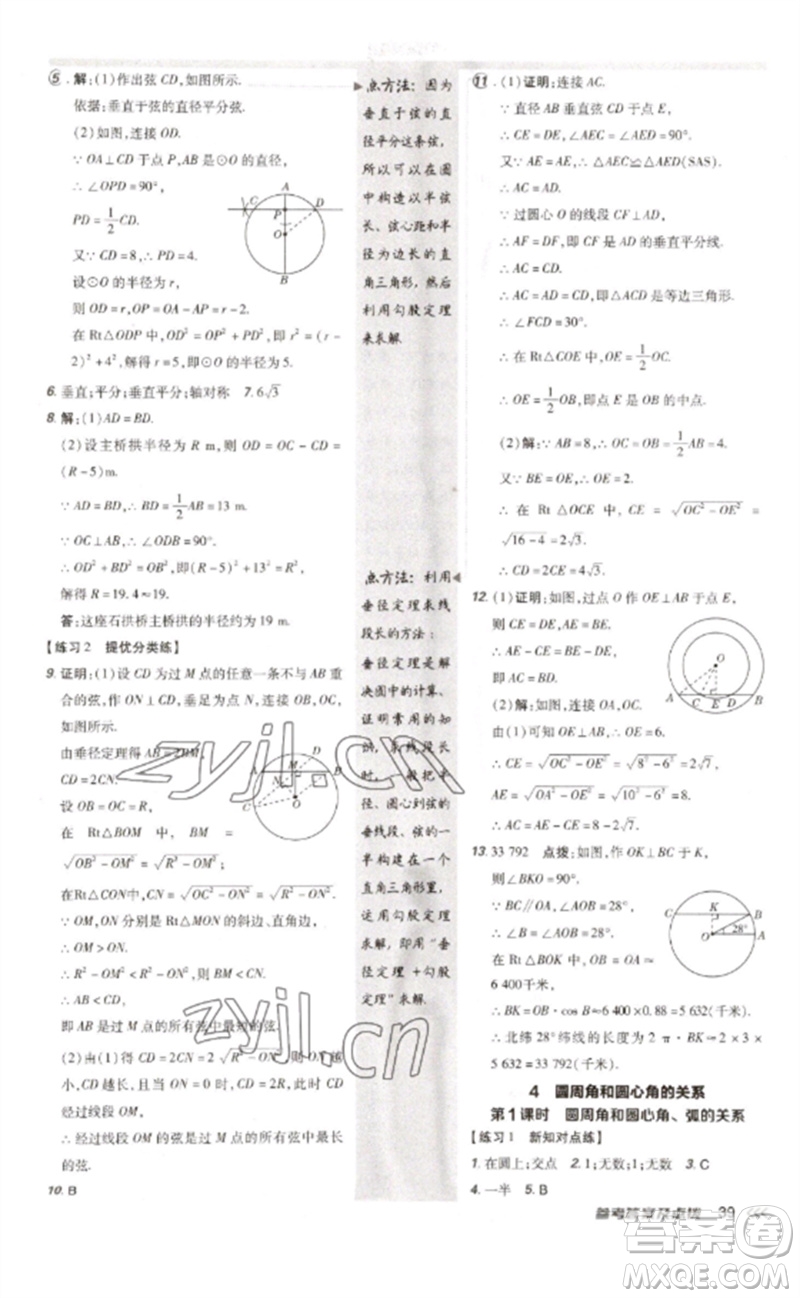 5. 解:(1)作出弦 CD,如图所示.
依据:垂直于弦的直径平分弦.
(2)如图,连接 OD.
∵ OA⊥CD 于点 P,AB 是⊙O 的直径,
∴ ∠OPD=90°,
PD=1/2CD.
又∵ CD=8,∴ PD=4.
设⊙O 的半径为 r,
则 OD=r,OP=OA-AP=r-2.
在 Rt△ODP 中,OD²=OP²+PD²,即 r²=(r-
2)²+4²,解得 r=5,即⊙O 的半径为 5.
6. 垂直;平分;垂直平分;轴对称 7. 6√3
8. 解:(1)AD=BD.
(2)设主桥拱半径为 R m,则 OD=OC-CD=
(R-5)m.
∵ AD=BD,∴ BD=1/2AB=13 m.
∵ OC⊥AB,∴ ∠ODB=90°.
∴ OD²+BD²=OB²,即(R-5)²+13²=R²,
解得 R=19.4≈19.
答:这座石拱桥主桥拱的半径约为 19 m.
【练习2 提优分类练】
9. 证明:(1)设 CD 为过 M 点的任意一条不与 AB 重
合的弦,作 ON⊥CD,垂足为点 N,连接 OB,OC,
如图所示.
由垂径定理得 AB=2BM,
CD=2CN.
设 OB=OC=R,
在 Rt△BOM 中, BM=
√(OB²-OM²)=√(R²-OM²),
在 Rt△CON 中,CN=√(OC²-ON²)=√(R²-ON²).
∵ OM,ON 分别是 Rt△MON 的斜边、直角边,
∴ OM>ON.
∴ R²-OM²<R²-ON².
∴ BM<CN.
∴ AB<CD.
即 AB 是过 M 点的所有弦中最短的弦.
(2)由(1)得 CD=2CN=2√(R²-ON²),ON 越
小,CD 越长,且当 ON=0 时,CD=2R,此时 CD
经过圆心.
∴ 经过线段 OM 的弦是过 M 点的所有弦中最长
的弦.
10. B
点方法:因为
垂直于弦的直
径平分这条弦,
所以可以在圆
中构造以半弦
长、弦心距和半
径为边长的直
角三角形,然后
利用勾股定理
来求解.
点方法:利用
垂径定理求线
段长的方法:
垂径定理是解
决圆中的计算、
证明常用的知
识,求线段长
时,一般把半
径、圆心到弦的
垂线段、弦的一
半构建在一个
直角三角形里,
运用勾股定理
求解,即用"垂
径定理+勾股
定理"求解.
11. (1)证明:连接 AC.
∵ 直径 AB 垂直弦 CD 于点 E,
∴ CE=DE,∠AEC=∠AED=90°.
又∵ AE=AE,∴ △AEC≌△AED(SAS).
∴ AC=AD.
∵ 过圆心 O 的线段 CF⊥AD,
∴ AF=DF,即 CF 是 AD 的垂直平分线.
∴ AC=CD.∴ AC=AD=CD.
∴ △ACD 是等边三角形.
∴ ∠FCD=30°.
∴ 在 Rt△COE 中,OE=1/2OC.
∴ OE=1/2OB,即点 E 为 OB 的中点.
(2)解:∵ AB=8,∴ OC=OB=1/2AB=4.
又∵ BE=OE,∴ OE=2.
∴ 在 Rt △OCE 中, CE=√(OC²-OE²)=
√(16-4)=2√3.
∴ CD=2CE=4√3.
12. (1)证明:如图,过点 O 作 OE⊥AB 于点 E,
则 CE=DE,AE=BE,
∴ AE-CE=BE-DE,
即 AC=BD.
(2)解:如图,连接 OA,OC.
由(1)可知 OE⊥AB,∴ OE=6.
∴ CE=√(OC²-OE²)=√(8²-6²)=2√7,
AE=√(OA²-OE²)=√(10²-6²)=8.
∴ AC=AE-CE=8-2√7.
13. 33 792 点拨:如图,作 OK⊥BC 于 K,
则∠BKO=90°.
∵ BC∥OA,∠AOB=28°,
∴ ∠B=∠AOB=28°.
在 Rt △BOK 中, OB=
6 400千米,
∴ BK=OB·cos B≈6 400×0.88=5 632(千米).
∴ 北纬 28°纬线的长度为 2·π·BK≈2×3×
5 632=33 792(千米).
4 圆周角和圆心角的关系
第1课时 圆周角和圆心角、弧的关系
【练习1 新知对点练】
1. 在圆上;交点 2. 1;无数;1;无数 3. C
4. 一半 5. B
参考答案及点拨 39
zyjl.cn
zyjl.cn
答案圈
MXQE.COM